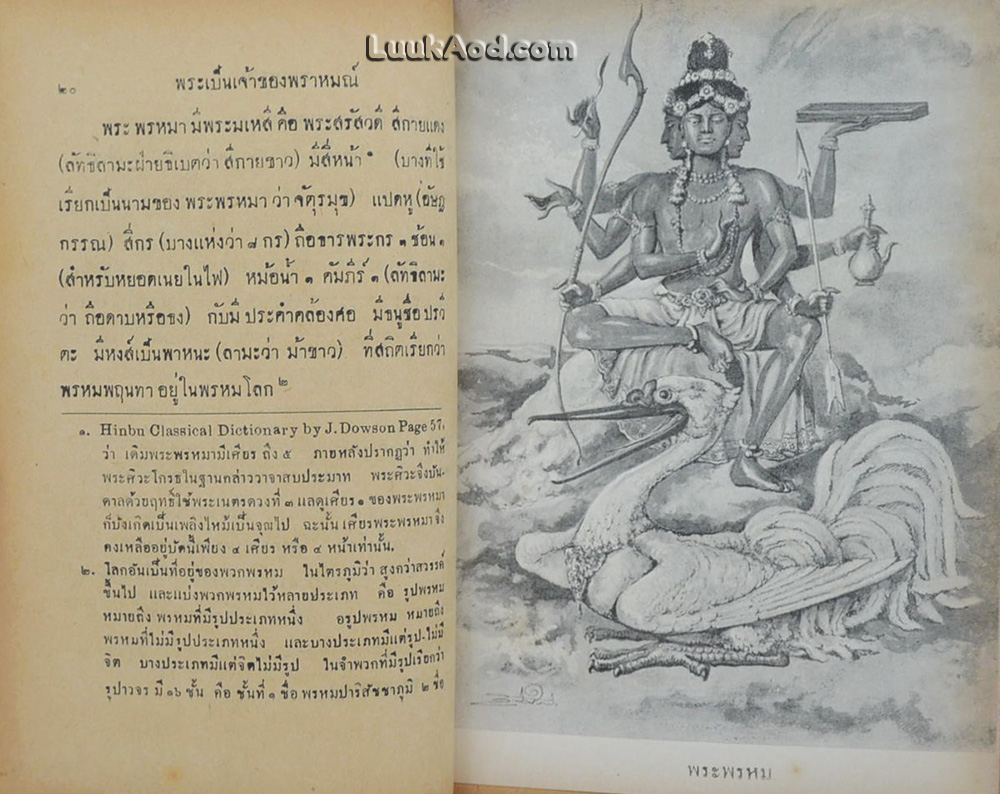 LuukAod.com
๒๐ พระเป็นเจ้าของพราหมณ์
พระ พรหมา มีพระมเหสี คือ พระสรัสวดี สีกายแดง
(ลัทธิลามะฝ่ายธิเบตว่า สีกายขาว) มีสี่หน้า ๑ (บางทีใช้
เรียกเป็นนามของ พระพรหมา ว่า จัตุรมุข) แปดหู (อัษฏ
กรรณ) สี่กร (บางแห่งว่า ๘ กร) ถือธารพระกร ๑ ช้อน ๑
(สำหรับหยอดเนยในไฟ) หม้อน้ำ ๑ คัมภีร์ ๑ (ลัทธิลามะ
ว่า ถือดาบหรือธง) กับมี ประคำคล้องศอ มีธนูชื่อ ปริวี
ตะ มีหงส์เป็นพาหนะ (ลามะว่า ม้าขาว) ที่สถิตเรียกว่า
พรหมพฤนทา อยู่ในพรหมโลก ๒
๑. Hinbu Classical Dictionary by J. Dowson Page 57,
ว่า เดิมพระพรหมามีเศียร ถึง ๕ ภายหลังปรากฏว่า ทำให้
พระศิวะโกรธในฐานกล่าววาจาสบประมาท พระศิวะจึงบัน-
ดาลด้วยฤทธิ์ใช้พระเนตรดวงที่ ๓ แลดูเศียร ๑ ของพระพรหมา
ก็บังเกิดเป็นเพลิงไหม้เป็นจุณไป ฉะนั้น เศียรพระพรหมาจึง
คงเหลืออยู่บัดนี้เพียง ๔ เศียร หรือ ๔ หน้าเท่านั้น.
๒. โลกอันเป็นที่อยู่ของพวกพรหม ในไตรภูมิว่า สูงกว่าสวรรค์
ขึ้นไป และแบ่งพวกพรหมไว้หลายประเภท คือ รูปพรหม
หมายถึง พรหมที่มีรูปประเภทหนึ่ง อรูปพรหม หมายถึง
พรหมที่ไม่มีรูปประเภทหนึ่ง และบางประเภทมีแต่รูป-ไม่มี
จิต บางประเภทมีแต่จิตไม่มีรูป ในจำพวกที่มีรูปเรียกว่า
รูปาวจร มี ๑๖ ชั้น คือ ชั้นที่ ๑ ชื่อ พรหมปาริสัชชาภูมิ ๒ ชื่อ
พระพรหม